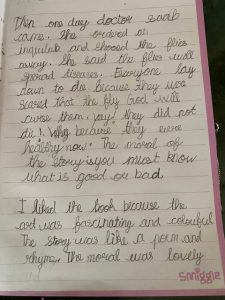 Then one day doctor saab
came. She ordered an
inquilab and shooed the flies
away. She said the flies will
spread diseases. Everyone lay
down to die because they were
scared that the fly God will
curse them. yay! they did not
die! Why because they were
healthy now. The moral of
the story is you must know
what is good or bad.
I liked the book because the
art was fascinating and colourful
The story was like a poem and
rhyme. The moral was lovely
Smiggle